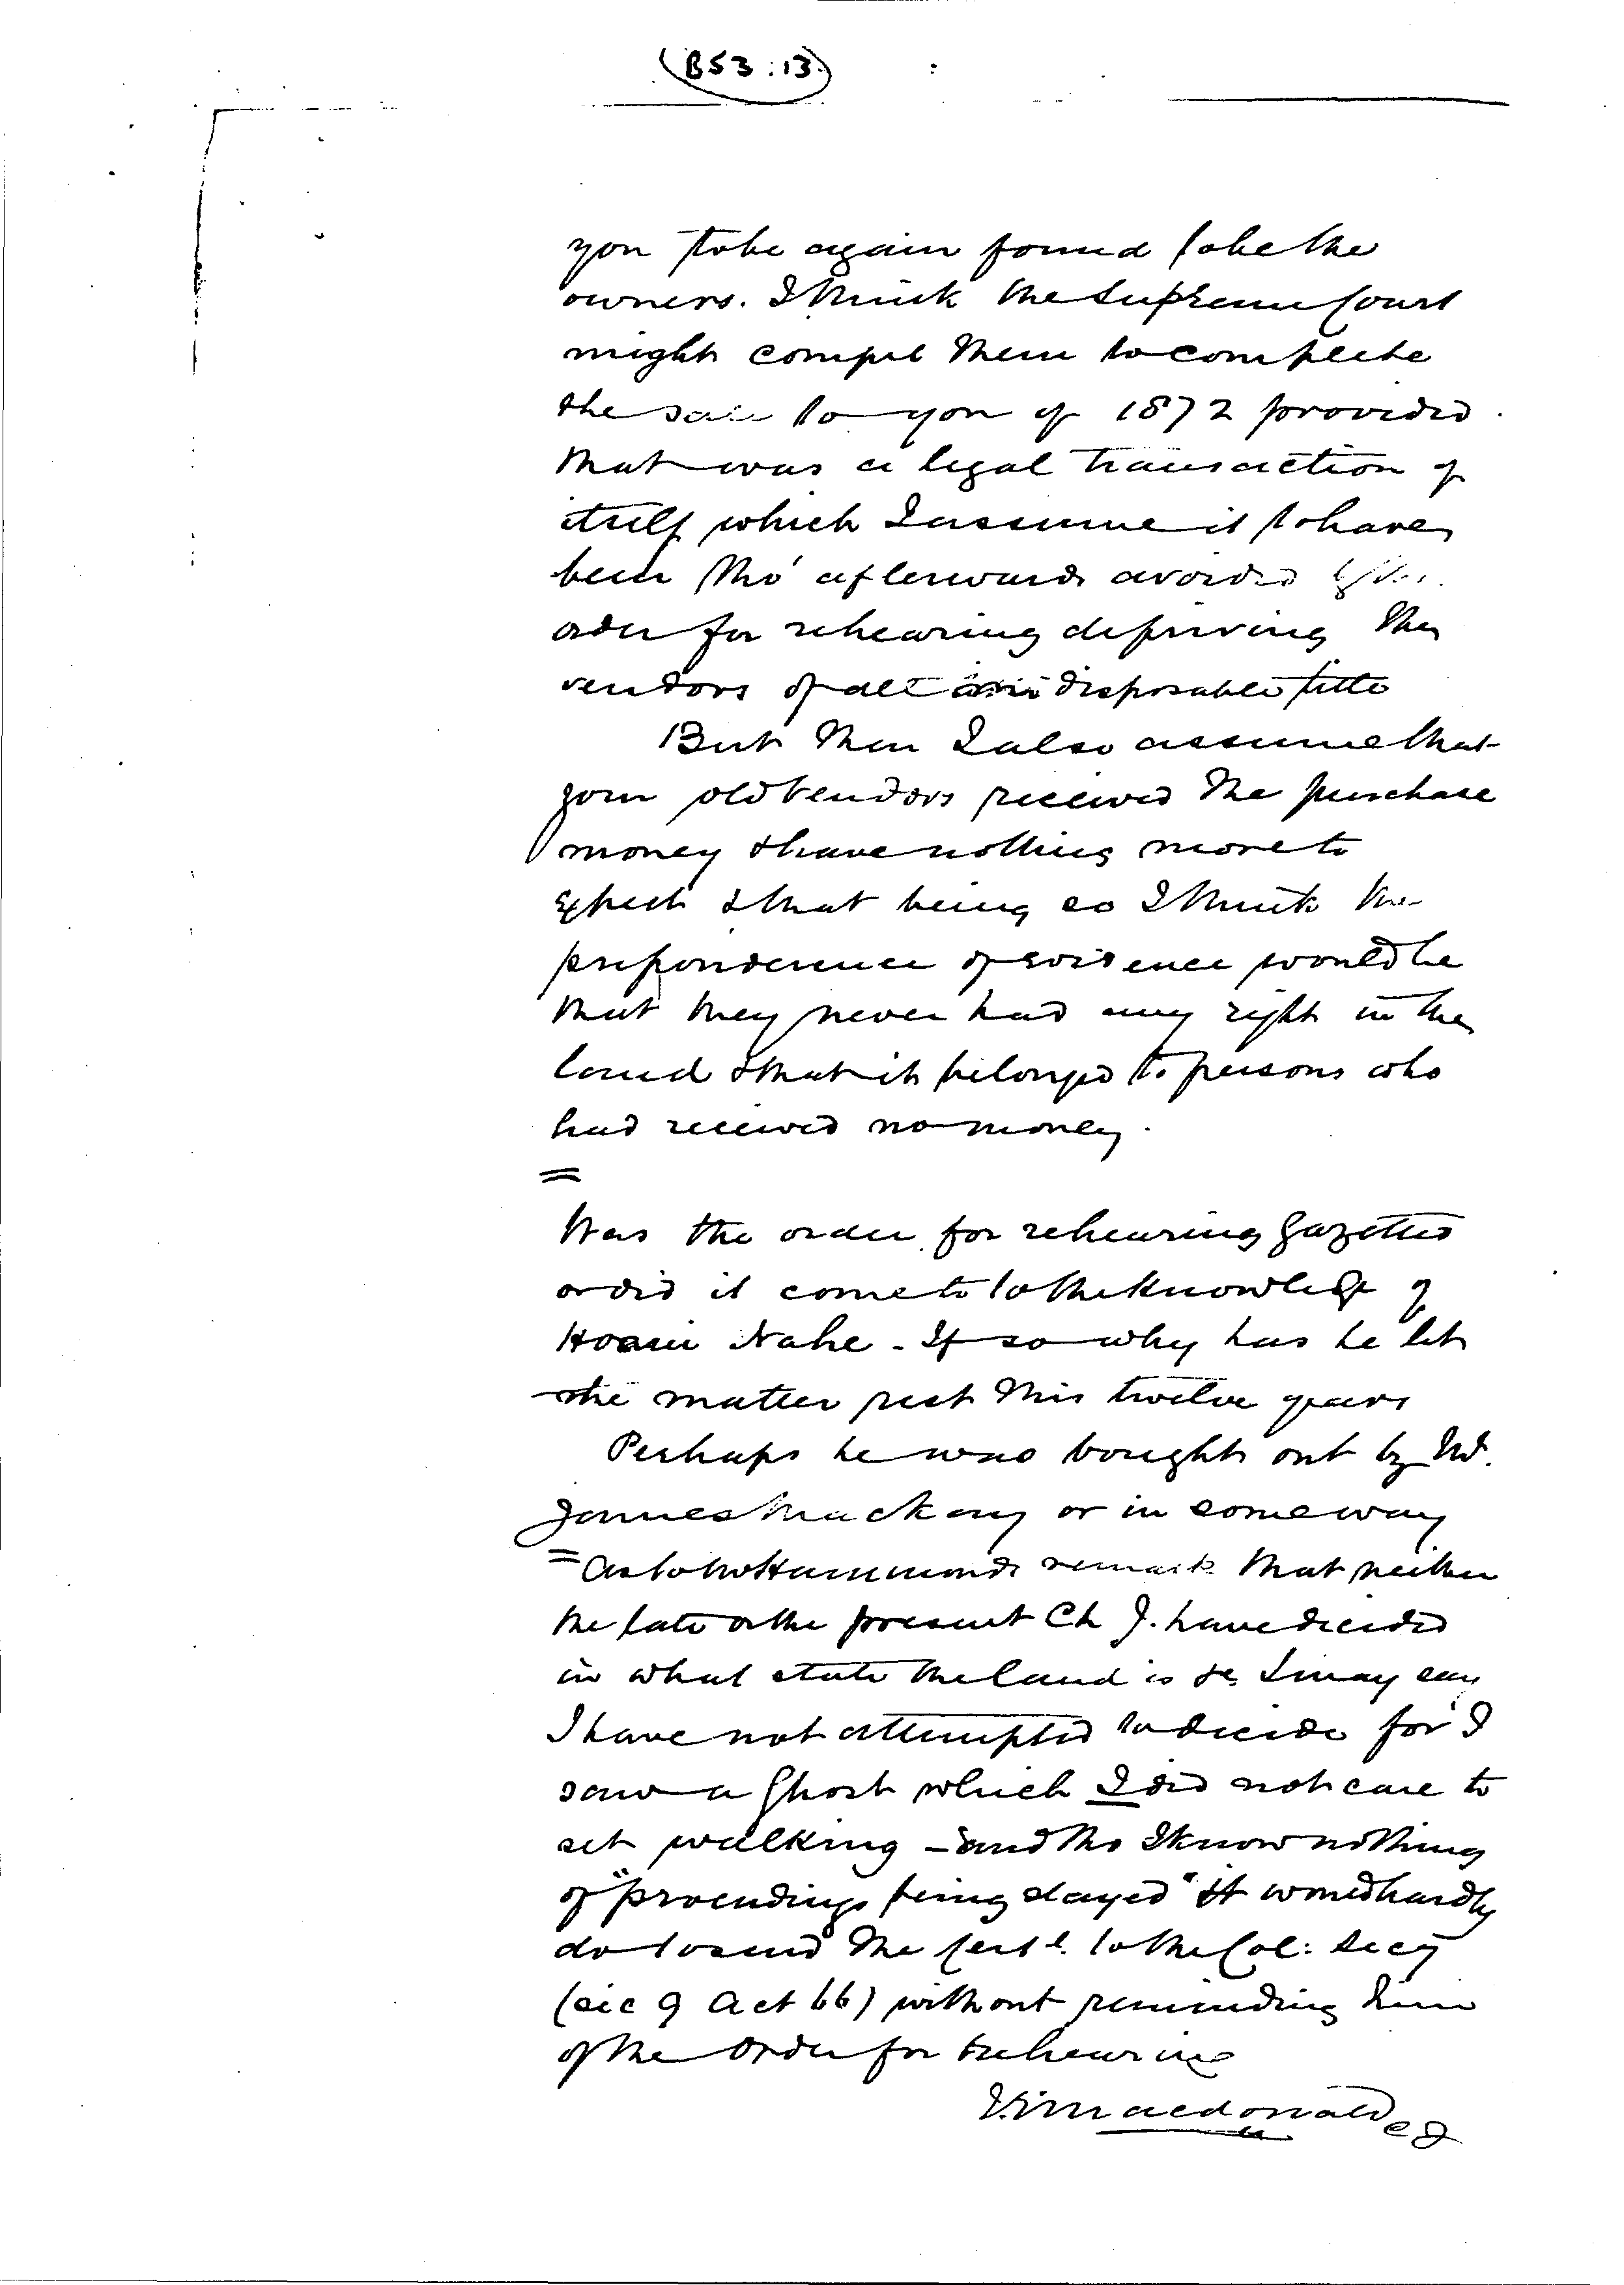 (B53:13)
you to be again found to be the
owners. I think the Supreme Court
might compel them to complete
the sale to you of 1872 provided
that was a legal transaction of
itself which I assume it to have
been tho' afterwards avoided by the
order for rehearing depriving the
vendors of all disposable title
But then I also assume that
your old vendors received the purchase
money & have nothing more to
expect & that being so I think the
preponderence of evidence would be
that they never had any right in the
land & that it belonged to persons who
had received no money.
=
Was the order for rehearing Gazetted
or did it come to to the knowledge of
Hoani Nahe - If so why has he let
the matter rest this twelve years
Perhaps he was bought out by Mr.
James Mackay or in some way
= As to Mr Hammonds remark that neither
the late or the present Ch J. have decided
in what state the land is &c I may say
I have not attempted to decide for I
saw a Ghost which I did not care to
set walking - and tho I know nothing
of "proceedings being stayed" it would hardly
do to send the cert. to the Col: Secy
(sec 9 Act 66) without reminding him
of the Order for Rehearing
Macdonald CJ